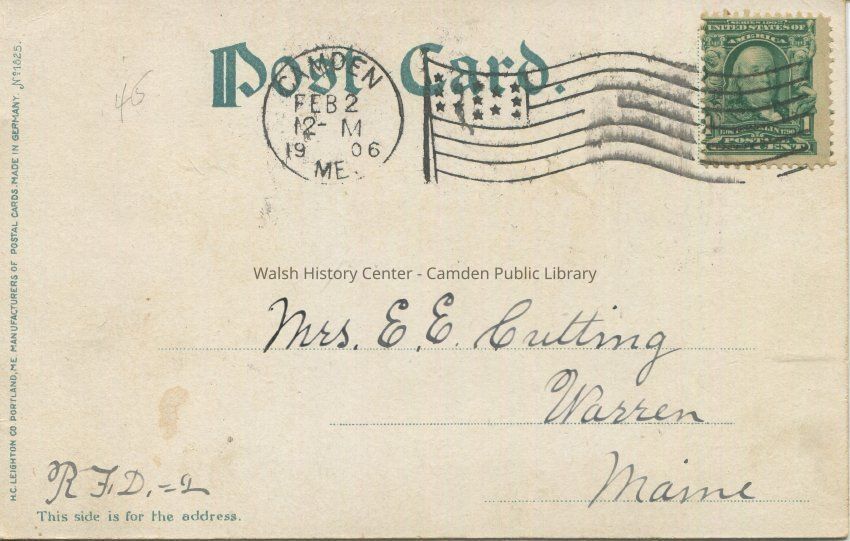 Post Card.
CAMDEN
FEB 2
12 - M
1906
ME.
SERIES 1902
UNITED STATES OF
AMERICA
POSTAGE
1 CENT
Walsh History Center - Camden Public Library
Mrs. E. E. Cutting
Warren
Maine
R.F.D. = 2
This side is for the address.
H.C. LEIGHTON CO PORTLAND, ME. MANUFACTURERS OF POSTAL CARDS. MADE IN GERMANY. No 1825.
46